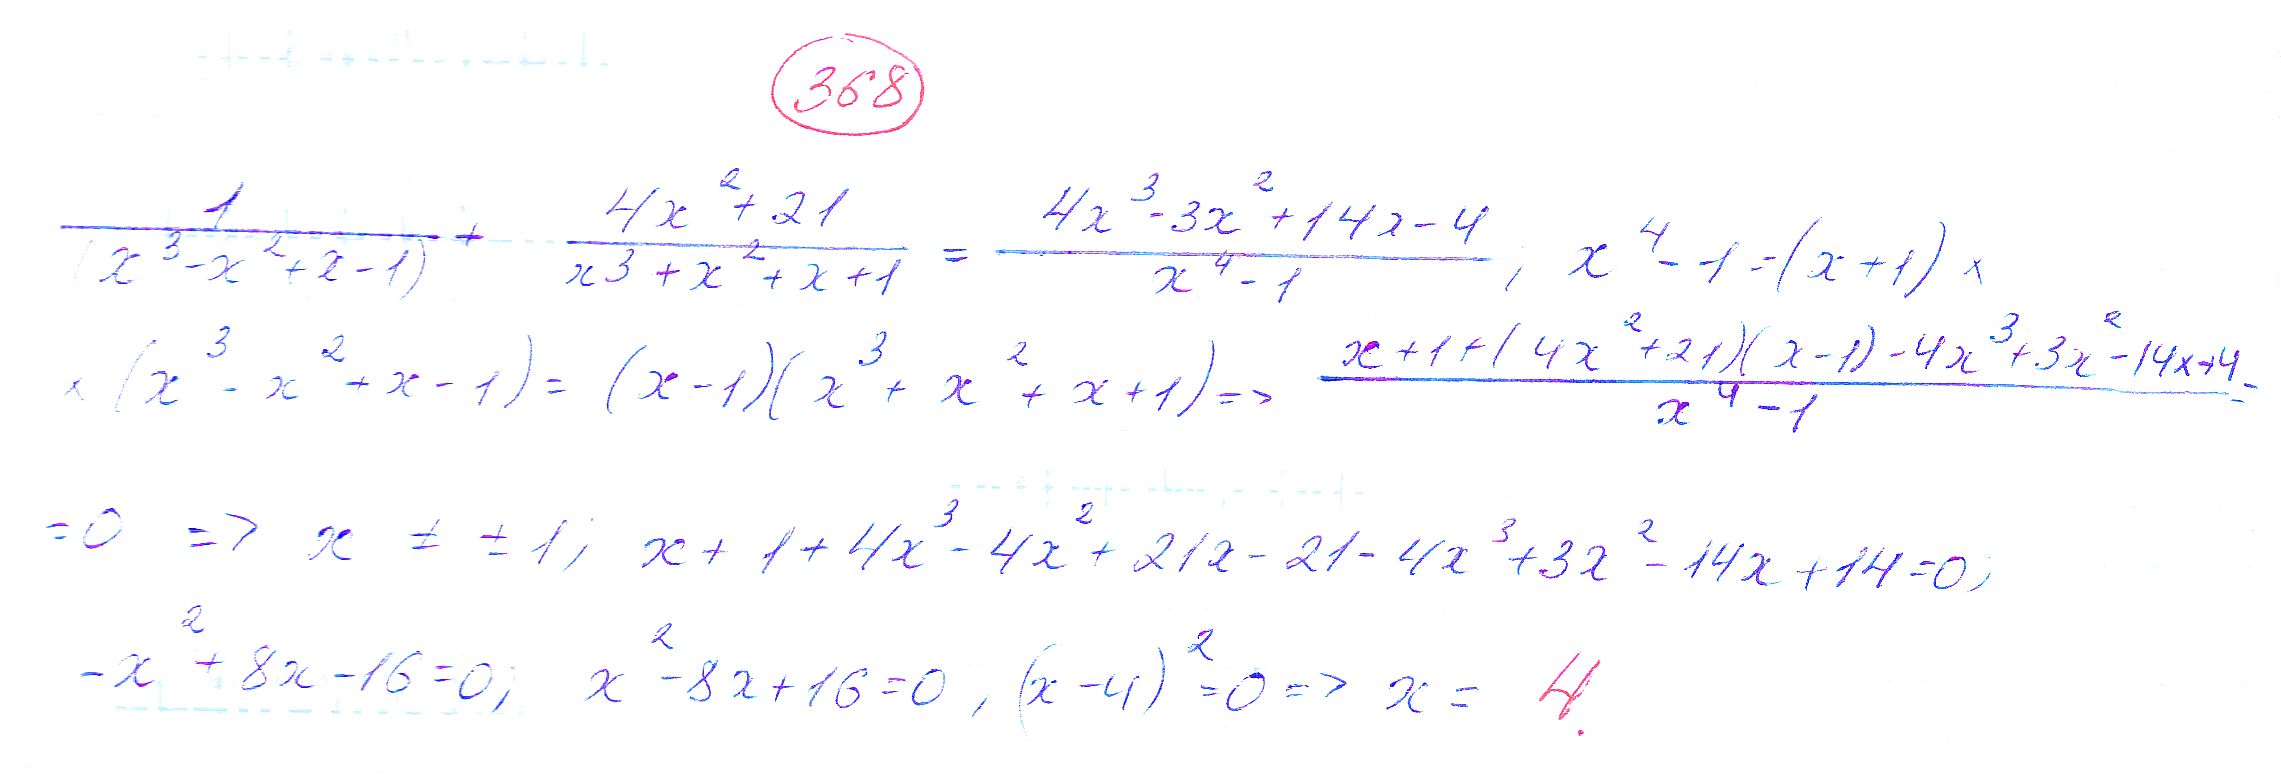 368
1/(x³-x²+x-1) + (4x²+21)/(x³+x²+x+1) = (4x³-3x²+14x-4)/(x⁴-1); x⁴-1=(x+1)×
×(x³-x²+x-1)=(x-1)(x³+x²+x+1)=> (x+1+(4x²+21)(x-1)-4x³+3x²-14x+4)/(x⁴-1)=
=0 => x ≠ ±1; x+1+4x³-4x²+21x-21-4x³+3x²-14x+14=0;
-x²+8x-16=0; x²-8x+16=0, (x-4)²=0=> x= 4.